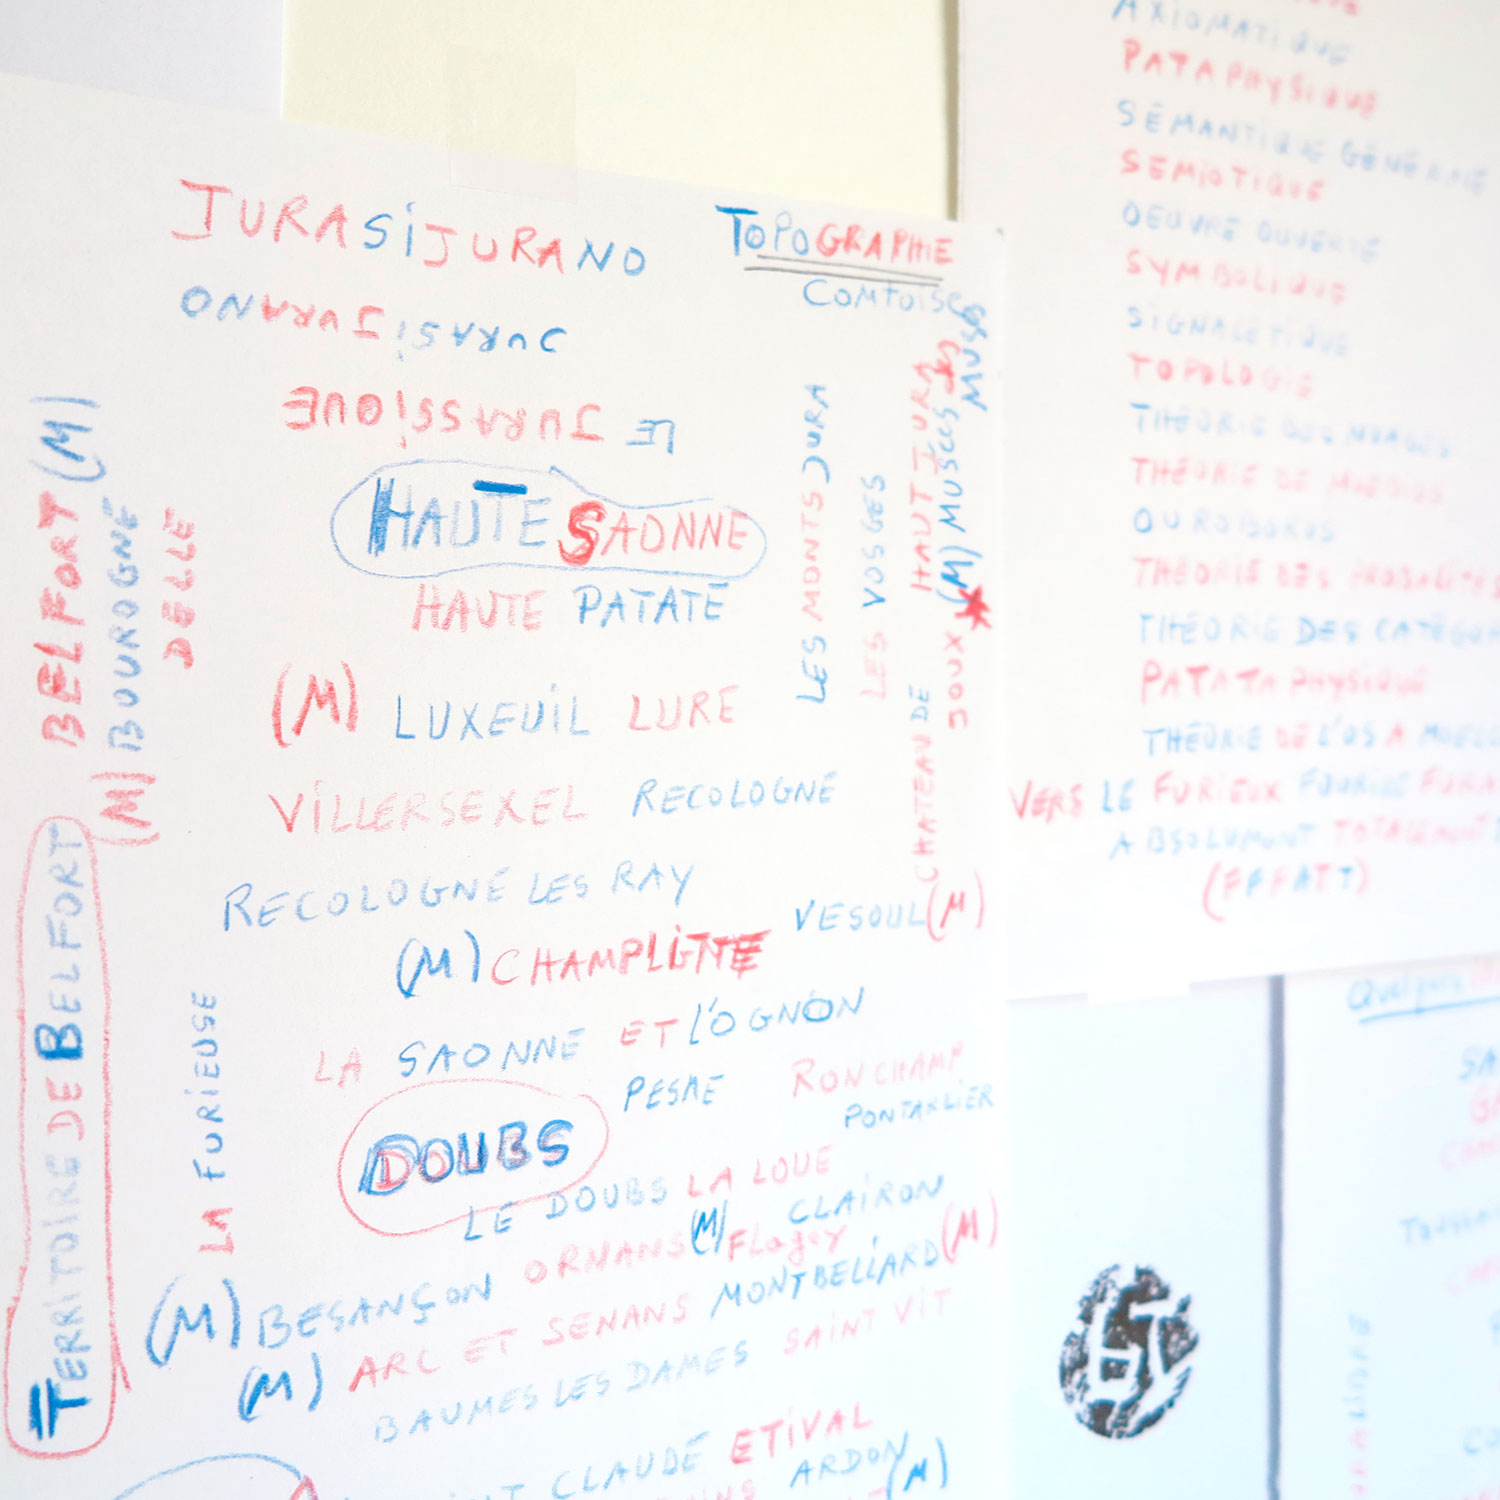 JURASiJURANO
TOPOGRAPHIE
COMTOISES
JURASiJURANO
LE JURASSiQUE
HAUTE SAONNE
HAUTE PATATE
(M) LUXEUiL LURE
ViLLERSEXEL RECOLOGNE
RECOLOGNE LES RAY
VESOUL (M)
(M) CHAMPLiTTE
LA SAONNE ET L'OGNON
PESME RONCHAMP
PONTARLIER
DOUBS
LE DOUBS LA LOUE
ORNANS (M) FLagey CLAiRON
(M) BESANÇON
MONTBELiARD (M)
(M) ARC ET SENANS
BAUMES LES DAMES SAiNT ViT
CLAUDE ETiVAL
ARDON (M)
BELFORT (M)
(M) BOUROGNE
DELLE
TERRiTOiRE DE BELFORT
LA FURiEUSE
LES MONTS JURA
LES VOSGES
HAUT JURA
CHATEAU DE JOUX
(M) MUSÉES DES MUSO
AXiOMATiQUE
PATAPHYSiQUE
SÉMANTiQUE GÉNÉRALE
SEMiOTiQUE
OEUVRE OUVERTE
SYMBOLiQUE
SiGNALETiQUE
TOPOLOGiE
THEORiE DES NUAGES
THEORiE DE MOEBiUS
OUROBOROS
THEORiE DES PROBALiTES
THEORiE DES CATEGOR
PATATAPHYSiQUE
THEORiE DE L'OS A MOELL
VERS LE FURiEUX FOURiRE FURA
ABSOLUMENT TOTALEMENT
(EFFATT)
Quelques